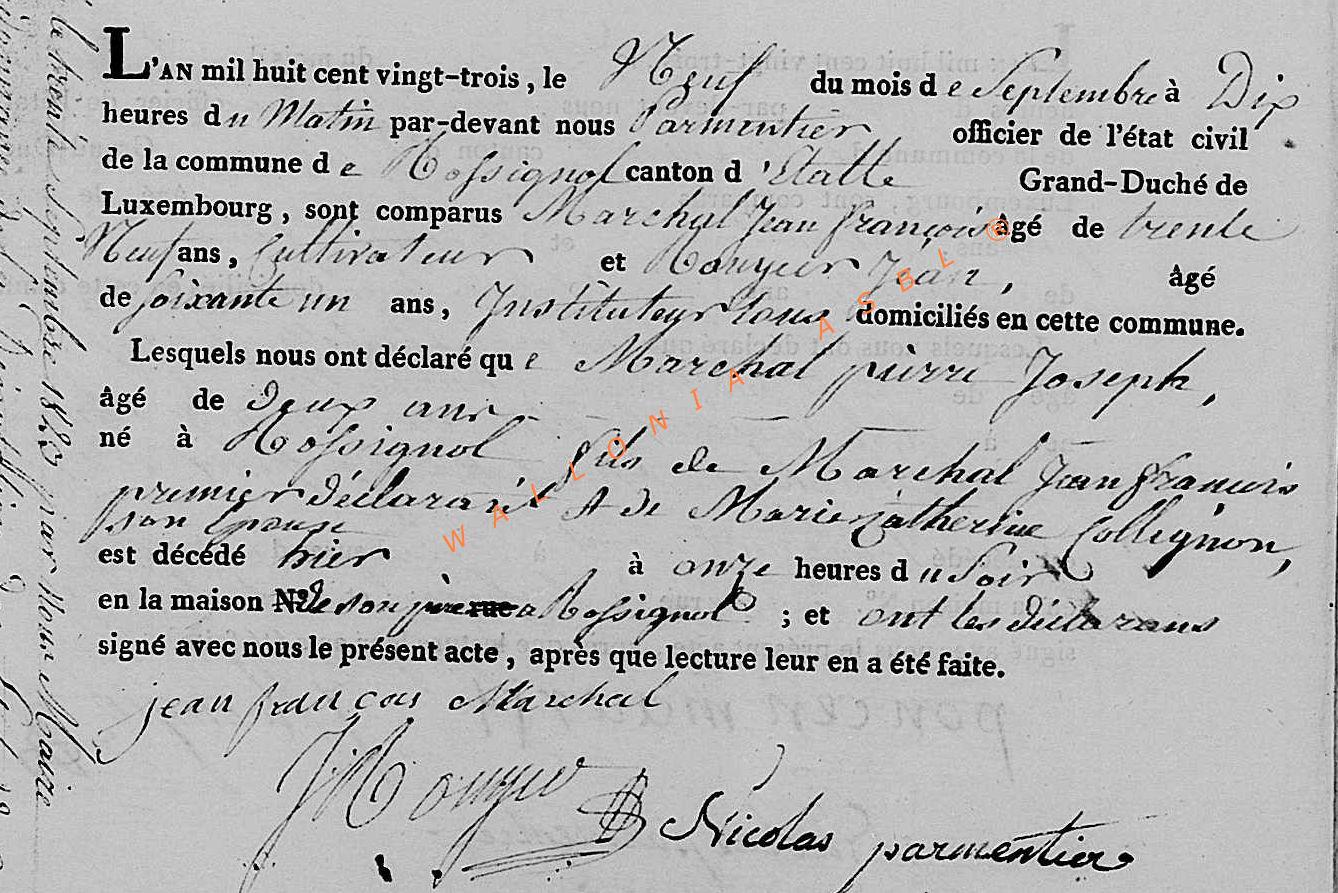 L'AN mil huit cent vingt-trois, le Neuf du mois de Septembre à Dix
heures du Matin par-devant nous Parmentier officier de l'état civil
de la commune de Rossignol canton d'Etalle Grand-Duché de
Luxembourg, sont comparus Marchal Jean françois âgé de trente
Neuf ans, Cultivateur et Rougeer Jean, âgé
de soixante un ans, Instituteur tous domiciliés en cette commune.
Lesquels nous ont déclaré que Marchal pierre Joseph,
âgé de Deux ans
né à Rossignol fils de Marchal Jean francois
premier déclarant et de Marie Catherine Collignon,
son Epouse
est décédé hier à onze heures du Soir
en la maison N.º de son père rue a Rossignol ; et ont les déclarans
signé avec nous le présent acte, après que lecture leur en a été faite.
jean françois Marchal
Nicolas parmentier
WALLONIA ASBL ©
le trente Septembre 1823 par Nous Maire